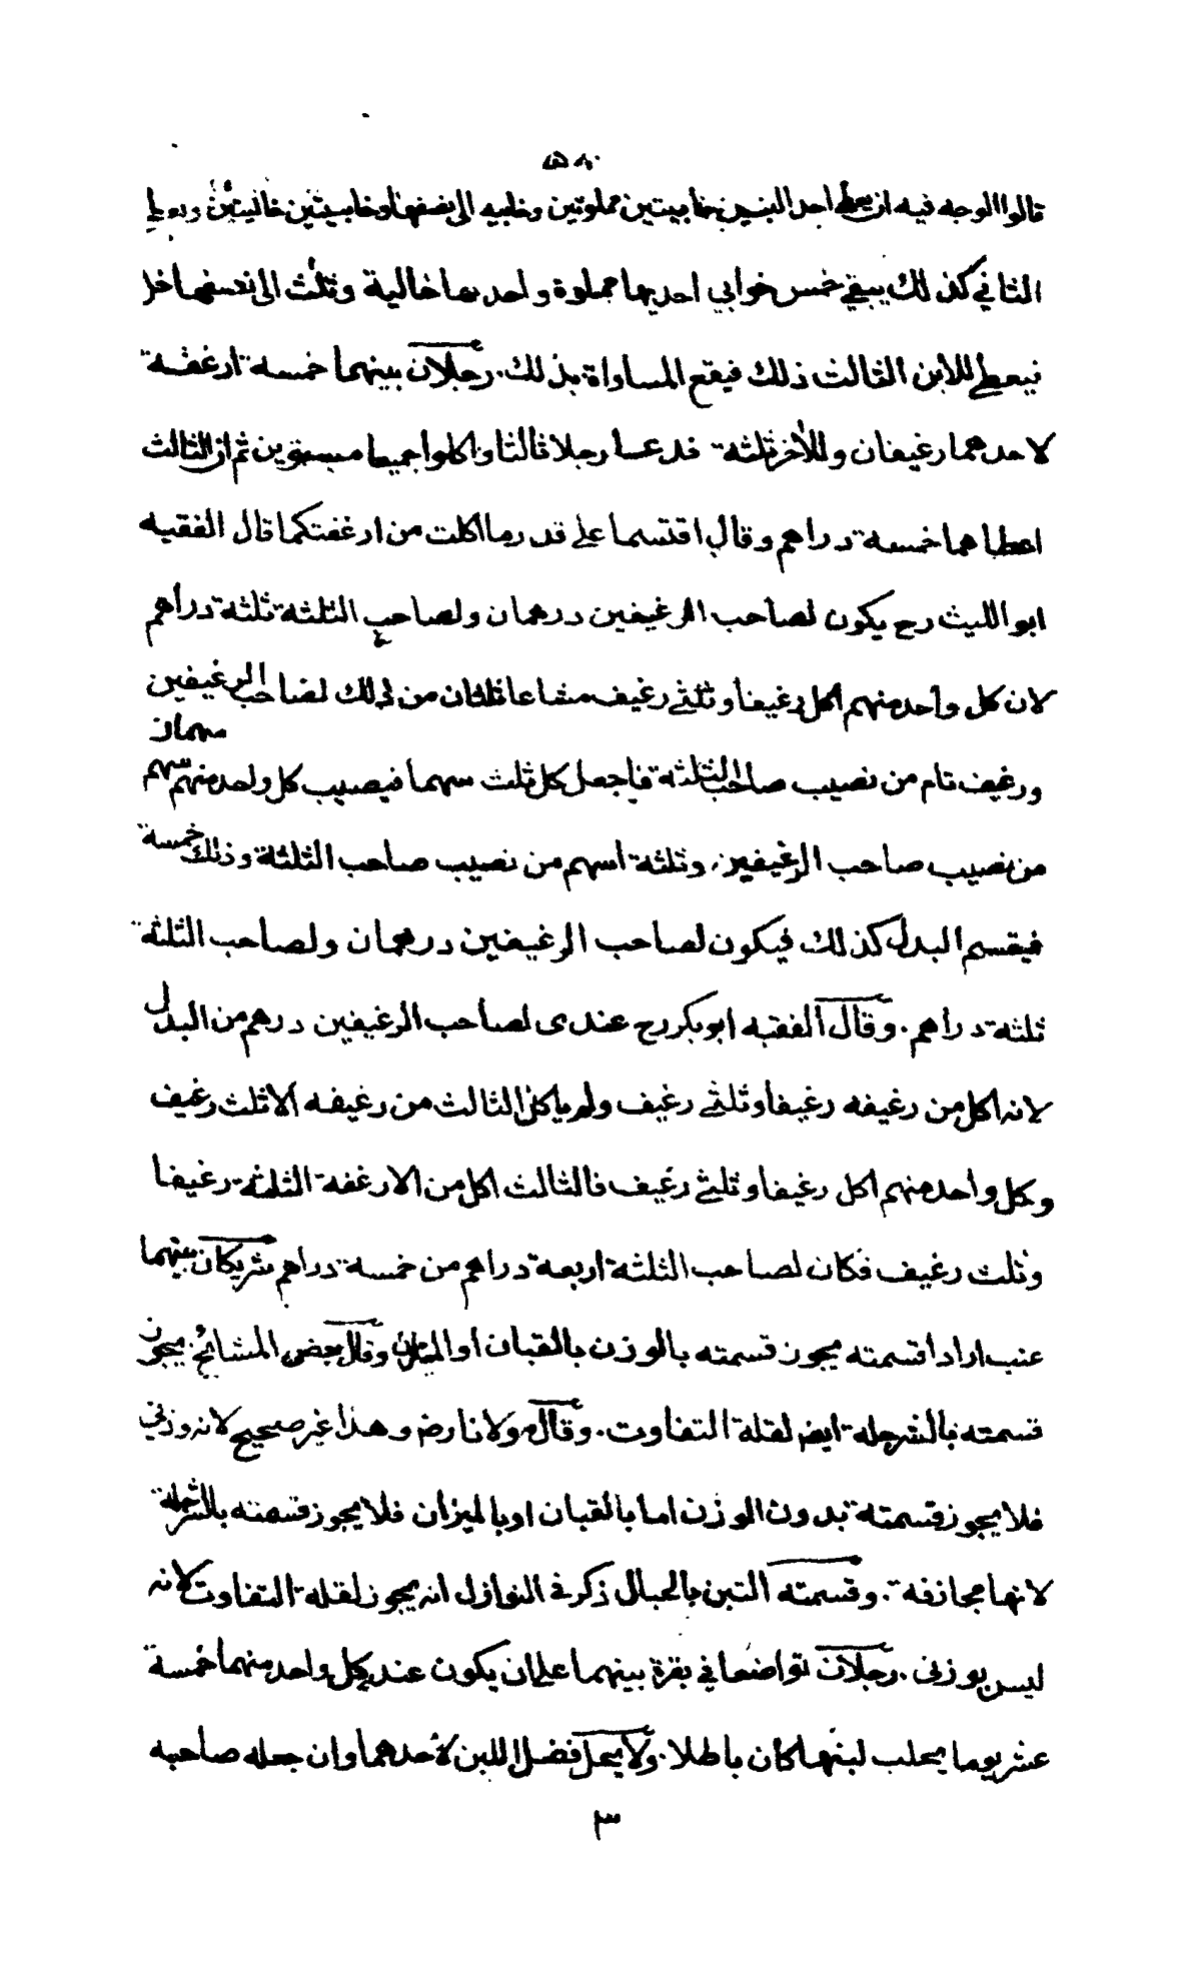 ٥٨٠
قالوا الوجه فيه ان يعطى احد البنين خابيتين مملوتين وخابيه الى نصفها وخابيتين خاليتين ويعطى
الثاني كذلك يبقى خمس خوابي احديها مملوة واحديها خالية وثلث الى نصفها خل
فيعطى للابن الثالث ذلك فيقع المساواة بذلك . رجلان بينهما خمسة ارغفة
لاحدهما رغيفان وللأخر ثلثة فدعا رجلا ثالثا واكلوا جميعا مستوين ثم ان الثالث
اعطاهما خمسة دراهم وقال اقتسما على قدر ما اكلت من ارغفتكما قال الفقيه
ابو الليث رح يكون لصاحب الرغيفين درهمان ولصاحب الثلثة ثلثة دراهم
لان كل واحد منهم اكل رغيفا وثلثي رغيف مشاعا ثلثان من ذلك لصاحب الرغيفين
ورغيف تام من نصيب صاحب الثلثة فاجعل كل ثلث سهما فيصيب كل واحد منهم سهم سهمان
من نصيب صاحب الرغيفين وثلثة اسهم من نصيب صاحب الثلثة وذلك خمسة
فيقسم البدل كذلك فيكون لصاحب الرغيفين درهمان ولصاحب الثلثة
ثلثة دراهم . وقال الفقيه ابو بكر رح عندى لصاحب الرغيفين درهم من البدل
لانه اكل من رغيفه رغيفا وثلثي رغيف ولم ياكل الثالث من رغيفه الا ثلث رغيف
وكل واحد منهم اكل رغيفا وثلثي رغيف فالثالث اكل من الارغفة الثلثة رغيفا
وثلث رغيف فكان لصاحب الثلثة اربعة دراهم من خمسة دراهم شريكان بينهما
عنب ارادا قسمته يجوز قسمته بالوزن بالقبان او الميزان وقال بعض المشائخ يجوز
قسمته بالشرجلة ايضا لقلة التفاوت . وقال مولانا رضه وهذا غير صحيح لانه وزني
فلا يجوز قسمته بدون الوزن اما بالقبان او بالميزان فلا يجوز قسمته بالشرجلة
لانها مجازفة . وقسمته التبن بالحبال ذكر في النوازل انه يجوز لقلة التفاوت لانه
ليس بوزنى . رجلان تواضعا في بقرة بينهما على ان يكون عند كل واحد منهما خمسة
عشر يوما يحلب لبنها كان باطلا . ولا يحل فضل اللبن لأحدهما وان جعله صاحبه
٣